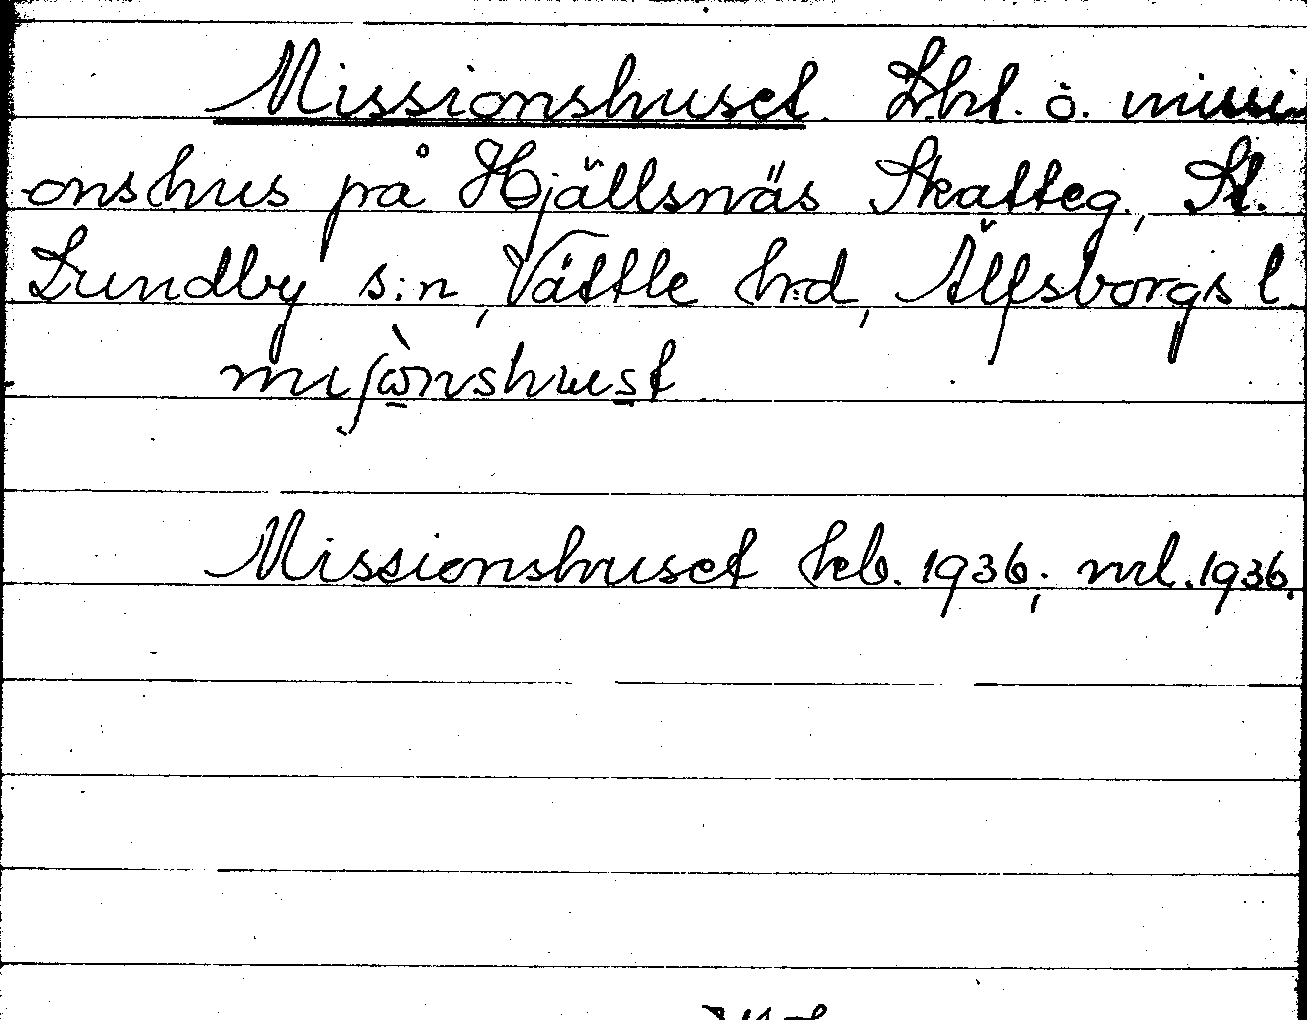 Missionshuset. Lht. o. missi
onshus på Hjällsnäs Skatteg., St.
Lundby s:n, Vättle hrd, Älfsborgs l.
miʃònshust
Missionshuset kb. 1936; ml. 1936.